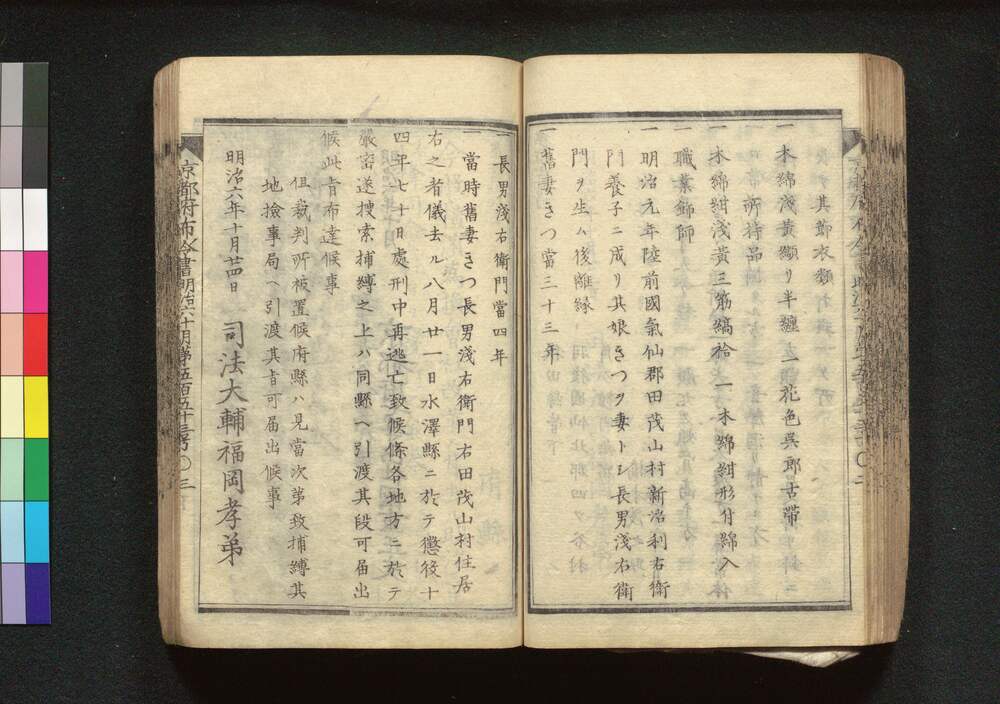 一木綿淺黄纈リ半纏 花色呉郎古帶
一木綿紺淺黄三筋縞袷 一木綿紺形付綿入
一職業飾師
一明治元年陸前國氣仙郡田茂山村新沼利右衞
門養子ニ成リ其娘きつヲ妻トシ長男淺右衞
門ヲ生ハ後離縁
一舊妻きつ當三十三年
一長男淺右衞門當四年
當時舊妻きつ長男淺右衞門右田茂山村住居
右之者儀去ル八月廿一日水澤縣ニ於テ懲役十
四年七十日處刑中再逃亡致候條各地方ニ於テ
嚴密遂搜索捕縛之上ハ同縣ヘ引渡其段可届出
候此旨布達候事
但裁判所被置候府縣ハ見當次第致捕縛其
地檢事局ヘ引渡其旨可届出候事
明治六年十月廿四日 司法大輔福岡孝弟
京都府布令書明治六十月第五百五十三号〇三